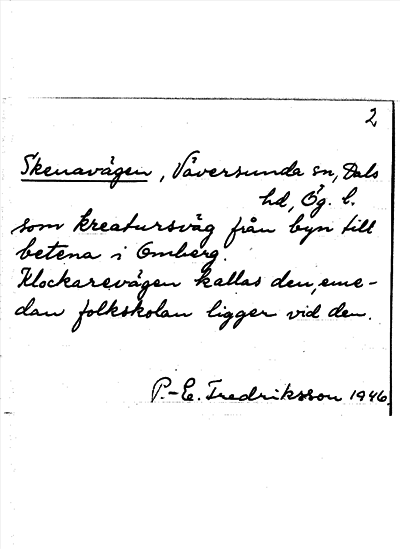 2
Skenavägen, Väversunda sn, Dals
hd, Ög. l.
som kreatursväg från byn till
betena i Omberg.
Klockarevägen kallas den, eme-
dan folkskolan ligger vid den.
P.-E. Fredriksson 1946.